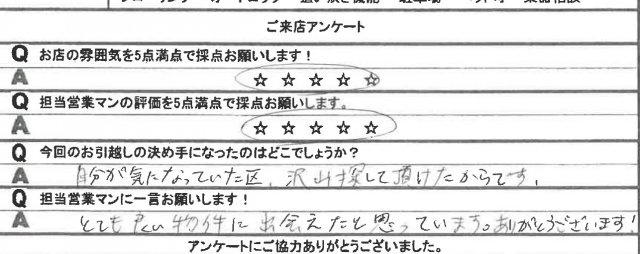 ご来店アンケート
Q お店の雰囲気を5点満点で採点お願いします！
A ☆ ☆ ☆ ☆ ☆
Q 担当営業マンの評価を5点満点で採点お願いします。
A ☆ ☆ ☆ ☆ ☆
Q 今回のお引越しの決め手になったのはどこでしょうか？
A 自分が気になっていた区、沢山探して頂けたからです。
Q 担当営業マンに一言お願いします！
A とても良い物件に出会えたと思っています。ありがとうございます！
アンケートにご協力ありがとうございました。